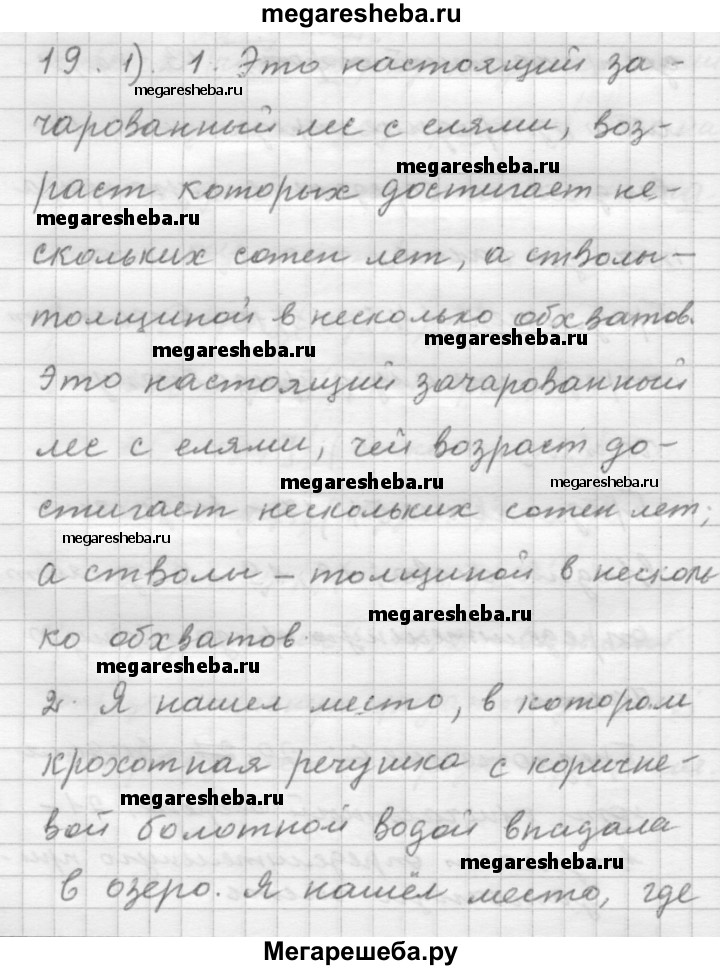 megaresheba.ru
19. 1). 1. Это настоящий за-
megaresheba.ru
чарованный лес с елями, воз-
megaresheba.ru
раст которых достигает не-
megaresheba.ru
скольких сотен лет, а стволы –
толщиной в несколько обхватов.
megaresheba.ru
megaresheba.ru
Это настоящий зачарованный
лес с елями, чей возраст до-
megaresheba.ru
megaresheba.ru
стигает нескольких сотен лет,
megaresheba.ru
а стволы – толщиной в несколь
megaresheba.ru
ко обхватов.
megaresheba.ru
2. Я нашел место, в котором
крохотная речушка с коричне-
megaresheba.ru
вой болотной водой впадала
megaresheba.ru
в озеро. Я нашёл место, где
Мегарешеба.ру